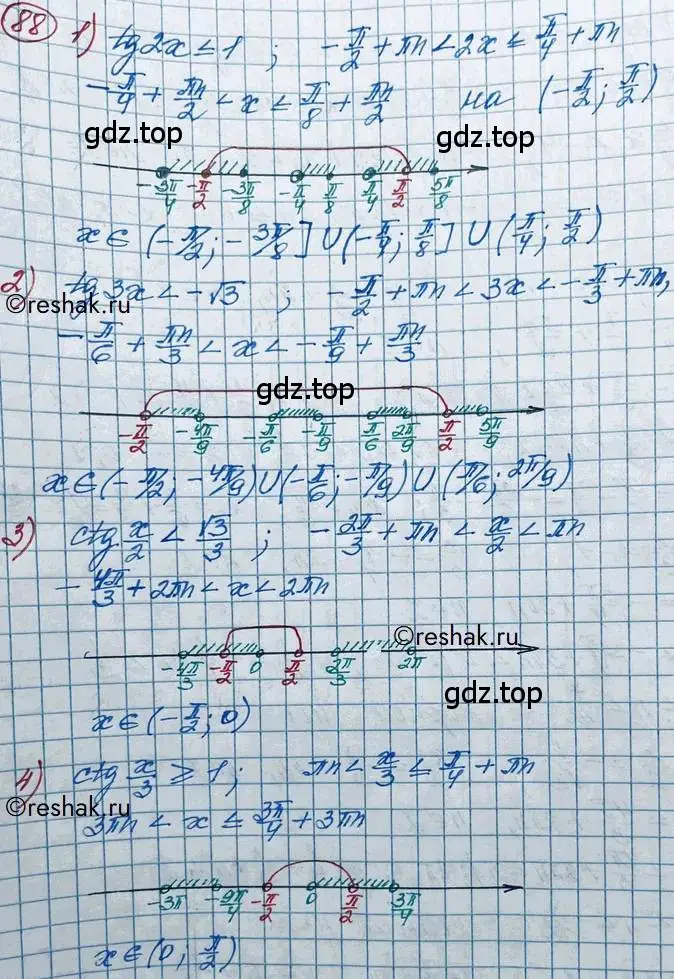 88 1) tg2x ≤ 1 ; -π/2 + πn < 2x ≤ π/4 + πn
-π/4 + πn/2 < x ≤ π/8 + πn/2 на (-π/2; π/2)
gdz.top gdz.top
-3π/4 -π/2 -3π/8 -π/4 π/8 π/4 π/2 5π/8
x ∈ (-π/2; -3π/8] ∪ (-π/4; π/8] ∪ (π/4; π/2)
2) tg3x < -√3 ; -π/2 + πn < 3x < -π/3 + πn,
©reshak.ru
-π/6 + πn/3 < x < -π/9 + πn/3
gdz.top
-π/2 -4π/9 -π/6 -π/9 π/6 2π/9 π/2 5π/9
x ∈ (-π/2; -4π/9) ∪ (-π/6; -π/9) ∪ (π/6; 2π/9)
3) ctg x/2 < √3/3 ; -2π/3 + πn < x/2 < πn
-4π/3 + 2πn < x < 2πn
©reshak.ru
-4π/3 -π/2 0 π/2 2π/3 2π
gdz.top
x ∈ (-π/2; 0)
4) ctg x/3 ≥ 1 ; πn < x/3 ≤ π/4 + πn
©reshak.ru
3πn < x ≤ 3π/4 + 3πn
-3π -9π/4 -π/2 0 π/2 3π/4
x ∈ (0; π/2)